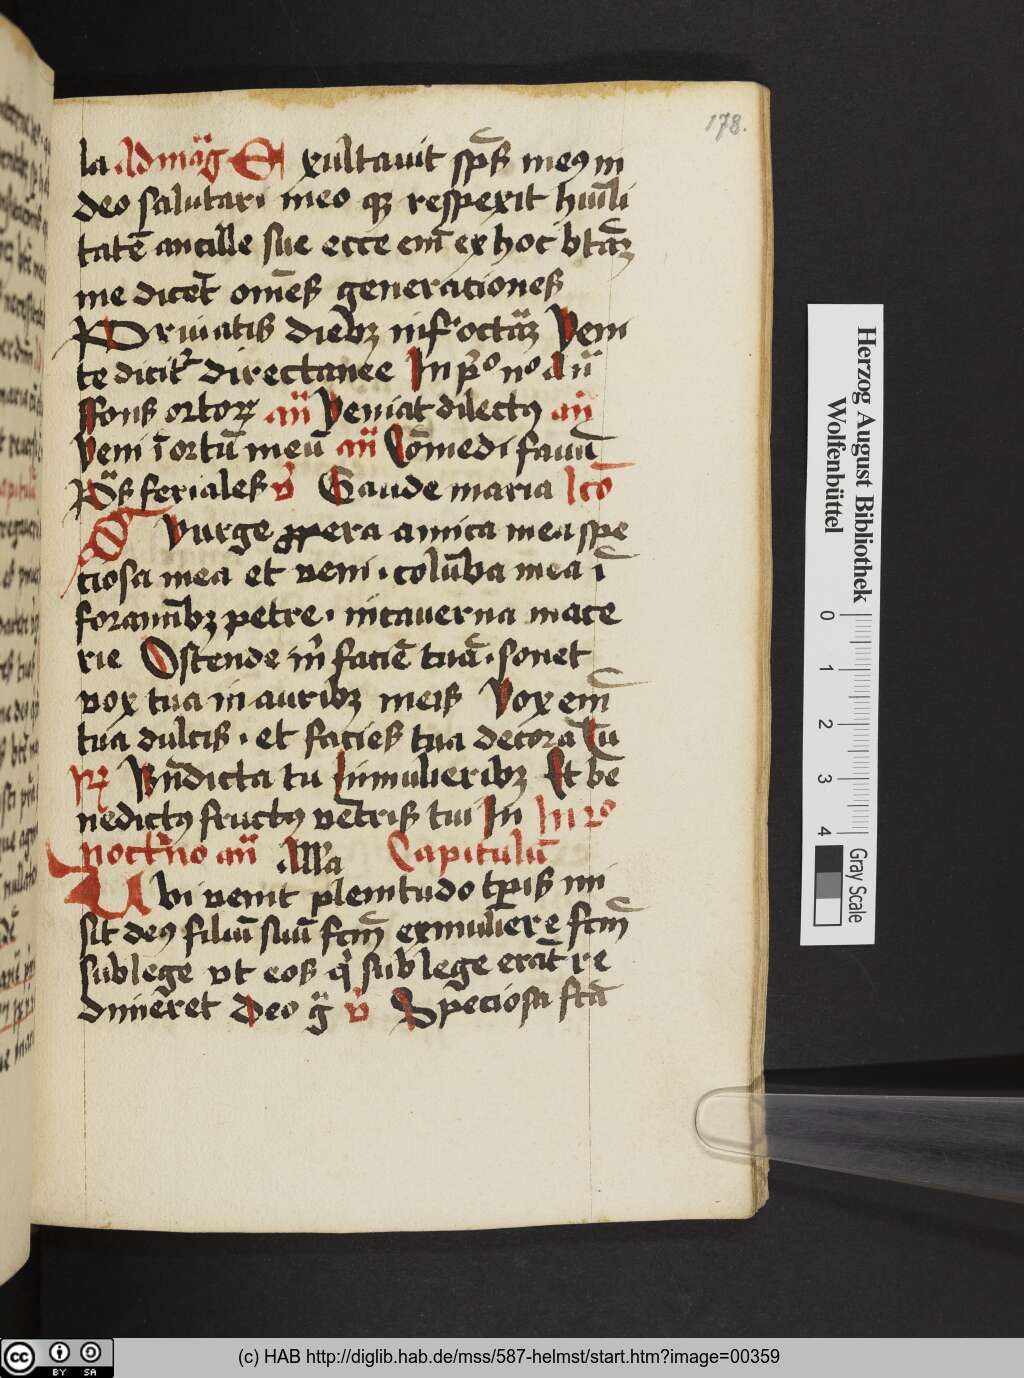 178.
la Ad mag̃ Exultauit sp̃s meꝯ in
deo salutari meo qꝫ respexit humĩli
tatẽ ancille sue ecce em̃ ex hoc btãꝫ
me dicẽt om̃es generationes
Priuatis diebꝫ infᵃ octãꝫ Veni
te dicitᷣ directanee In p̃º nº añ
ffons ortoꝝ añ Veniat dilectꝯ añ
Veni ĩ ortũ meũ añ Cõmedi fauũ
Pᵃs feriales v̾ Gaude maria lcõ
Svurge ꝓpera amica mea spe
ciosa mea et veni · colũba mea ĩ
foramĩbꝫ petre · in cauerna mace
rie Ostende m̃ faciẽ tuã · sonet
vox tua in auribꝫ meis Vox em̃
tua dulcis · et facies tua decora Tu
ꝶ Bñdicta tu In mulieribꝫ Et be
nedictꝯ fructꝯ vẽtris tui In In 2º
noctᷣno añ Alla Capitulũ
Ubi venit plenitudo tꝑis mi
sit deꝯ filiũ suũ fcm̃ ex muliere fcm̃
sub lege vt eos q̾ sub lege erãt re
dimẽret Deo gᵃ v̾ Speciosa fcã
Herzog August Bibliothek
Wolfenbüttel
0 1 2 3 4
Gray Scale
cc BY SA
(c) HAB http://diglib.hab.de/mss/587-helmst/start.htm?image=00359